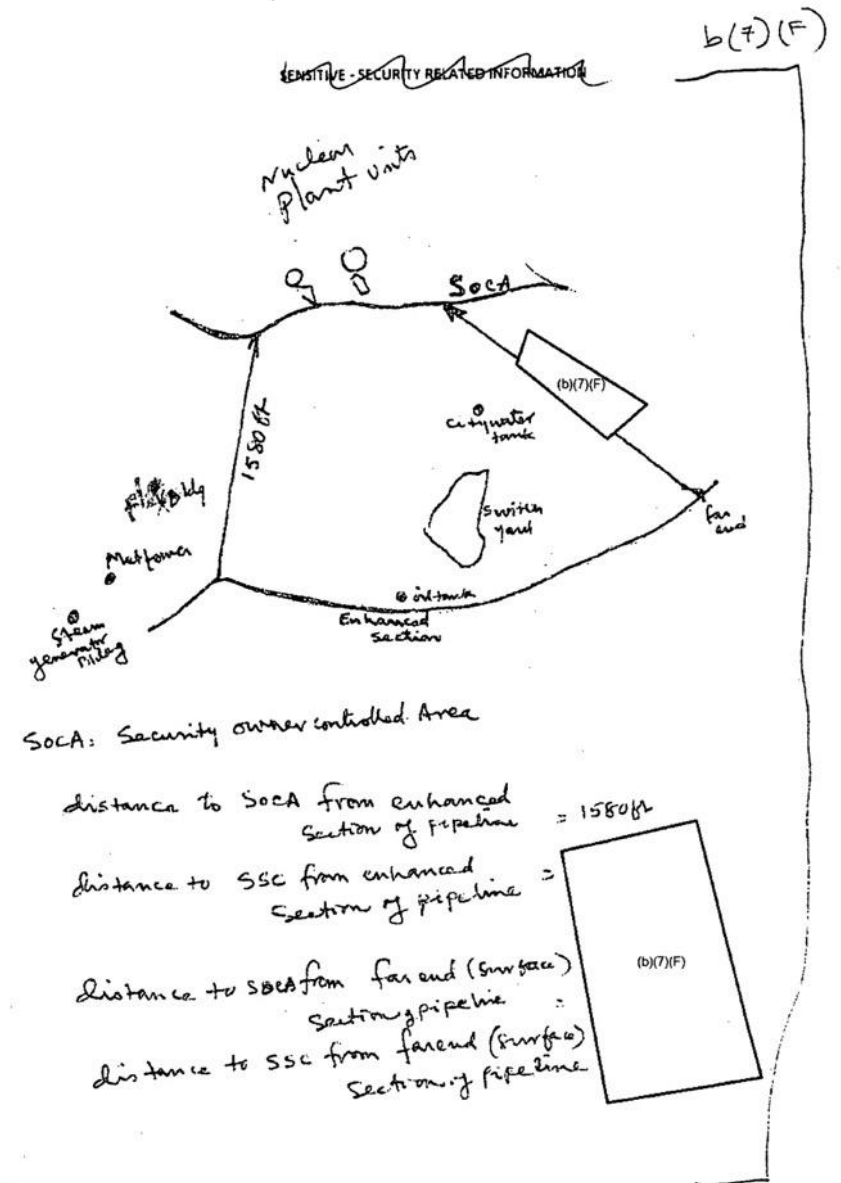 b(7)(F)
SENSITIVE - SECURITY RELATED INFORMATION
Nuclear
Plant units
SOCA
(b)(7)(F)
1580 ft
city water
tank
switch
yard
far
end
Bldg
Met tower
oil tank
Enhanced
section
Steam
generator
Bldg
SOCA: Security owner controlled Area
distance to SOCA from enhanced
Section of pipeline = 1580 ft
distance to SSC from enhanced
Section of pipeline =
(b)(7)(F)
distance to SOCA from far end (surface)
Section of pipeline =
distance to SSC from far end (surface)
Section of pipeline